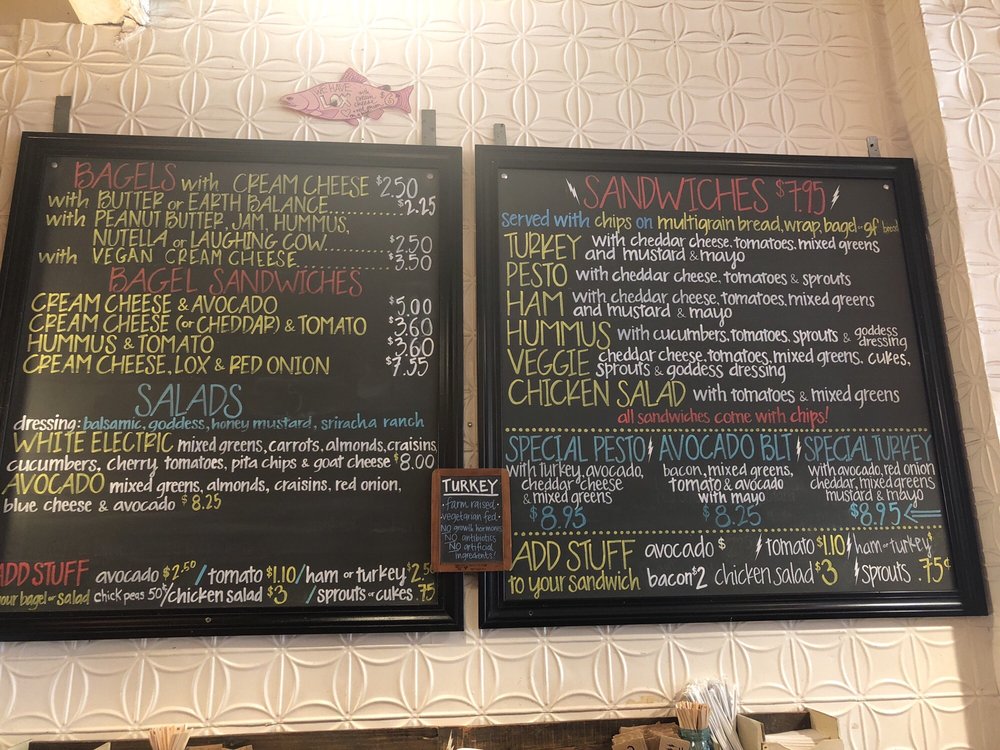 WE HAVE
LOX
BAGELS with CREAM CHEESE $2.50
with BUTTER or EARTH BALANCE............$2.25
with PEANUT BUTTER, JAM, HUMMUS,
NUTELLA or LAUGHING COW..........$2.50
with VEGAN CREAM CHEESE..............$3.50
BAGEL SANDWICHES
CREAM CHEESE & AVOCADO $5.00
CREAM CHEESE (or CHEDDAR) & TOMATO $3.60
HUMMUS & TOMATO $3.60
CREAM CHEESE, LOX & RED ONION $7.95
SALADS
dressing: balsamic, goddess, honey mustard, sriracha ranch
WHITE ELECTRIC mixed greens, carrots, almonds, craisins,
cucumbers, cherry tomatoes, pita chips & goat cheese $8.00
AVOCADO mixed greens, almonds, craisins, red onion,
blue cheese & avocado $8.25
ADD STUFF avocado $2.50 / tomato $1.10 / ham or turkey $2.50
your bagel or salad chick peas 50¢ / chicken salad $3 / sprouts or cukes .75
TURKEY
farm raised
vegetarian fed
NO growth hormones
NO antibiotics
NO artificial
ingredients!
SANDWICHES $7.95
served with chips on multigrain bread, wrap, bagel or gf bread
TURKEY with cheddar cheese, tomatoes, mixed greens
and mustard & mayo
PESTO with cheddar cheese, tomatoes & sprouts
HAM with cheddar cheese, tomatoes, mixed greens
and mustard & mayo
HUMMUS with cucumbers, tomatoes, sprouts & goddess dressing
VEGGIE cheddar cheese, tomatoes, mixed greens, cukes,
sprouts & goddess dressing
CHICKEN SALAD with tomatoes & mixed greens
all sandwiches come with chips!
SPECIAL PESTO
with turkey, avocado,
cheddar cheese
& mixed greens
$8.95
AVOCADO BLT
bacon, mixed greens,
tomato & avocado
with mayo
$8.25
SPECIAL TURKEY
with avocado, red onion
cheddar, mixed greens
mustard & mayo
$8.95
ADD STUFF avocado $ tomato $1.10 ham or turkey $
to your sandwich bacon $2 chicken salad $3 sprouts .75¢